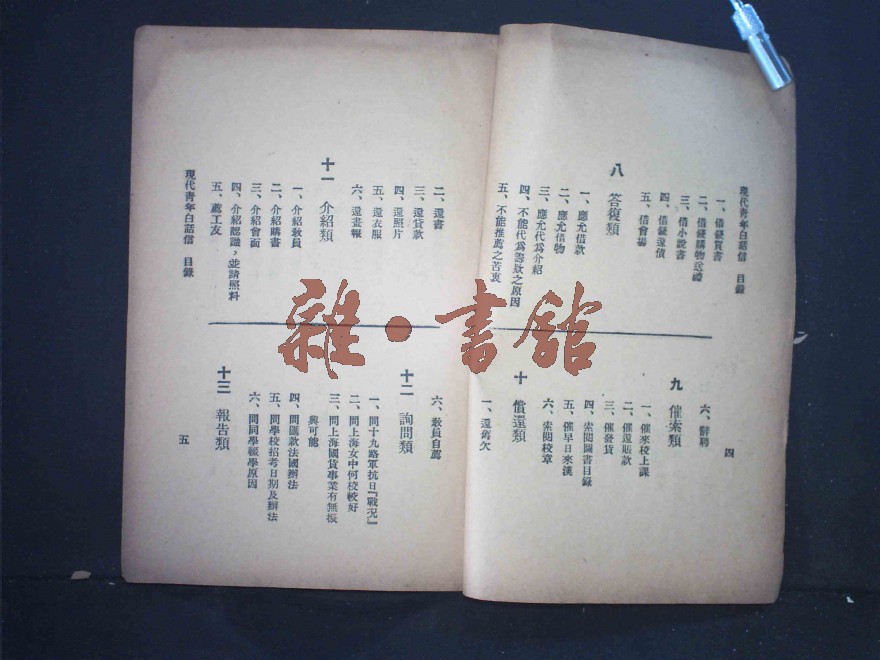 現代青年白話信　目錄
一、借錢買書
二、借錢購物送禮
三、借小說書
四、借錢還債
五、借會場
八　答復類
一、應允借款
二、應允借物
三、應允代為介紹
四、不能代為籌款之原因
五、不能推薦之苦衷
六、辭聘
九　催索類
一、催來校上課
二、催還賬款
三、催發貨
四、索閱圖書目錄
五、催早日來漢
六、索閱校章
十　償還類
一、還舊欠
四
二、還書
三、還貸款
四、還照片
五、還衣服
六、還畫報
十一　介紹類
一、介紹教員
二、介紹購書
三、介紹會面
四、介紹認識，並請照料
五、薦工友
現代青年白話信　目錄
六、教員自薦
十二　詢問類
一、問十九路軍抗日『戰況』
二、問上海女中何校較好
三、問上海國貨事業有無振
興可能
四、問匯款法國辦法
五、問學校招考日期及辦法
六、問同學輟學原因
十三　報告類
五
雜·書館